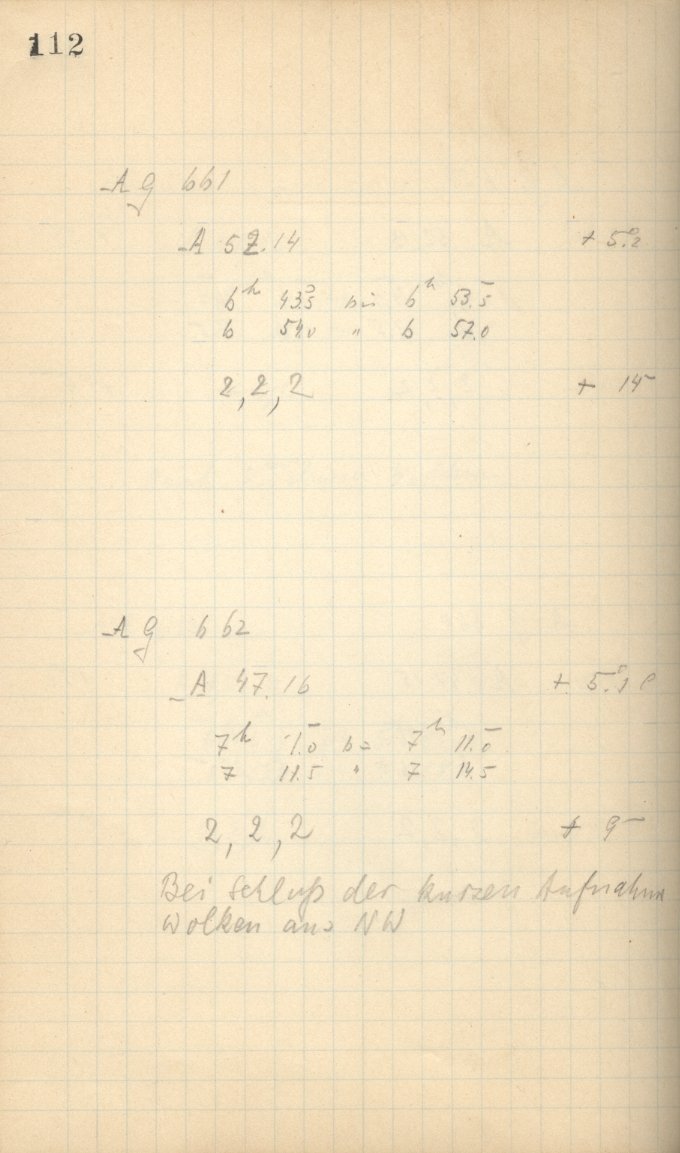 112
AG 661
A 52.14 + 5.°2
6h 43.5 bis 6h 53.5
6 54.0 " 6 57.0
2, 2, 2 + 14m
AG 662
A 47.16 + 5.°1
7h 1.0 bis 7h 11.0
7 11.5 " 7 14.5
2, 2, 2 + 9m
Bei Schluß der kurzen Aufnahme
Wolken aus NW